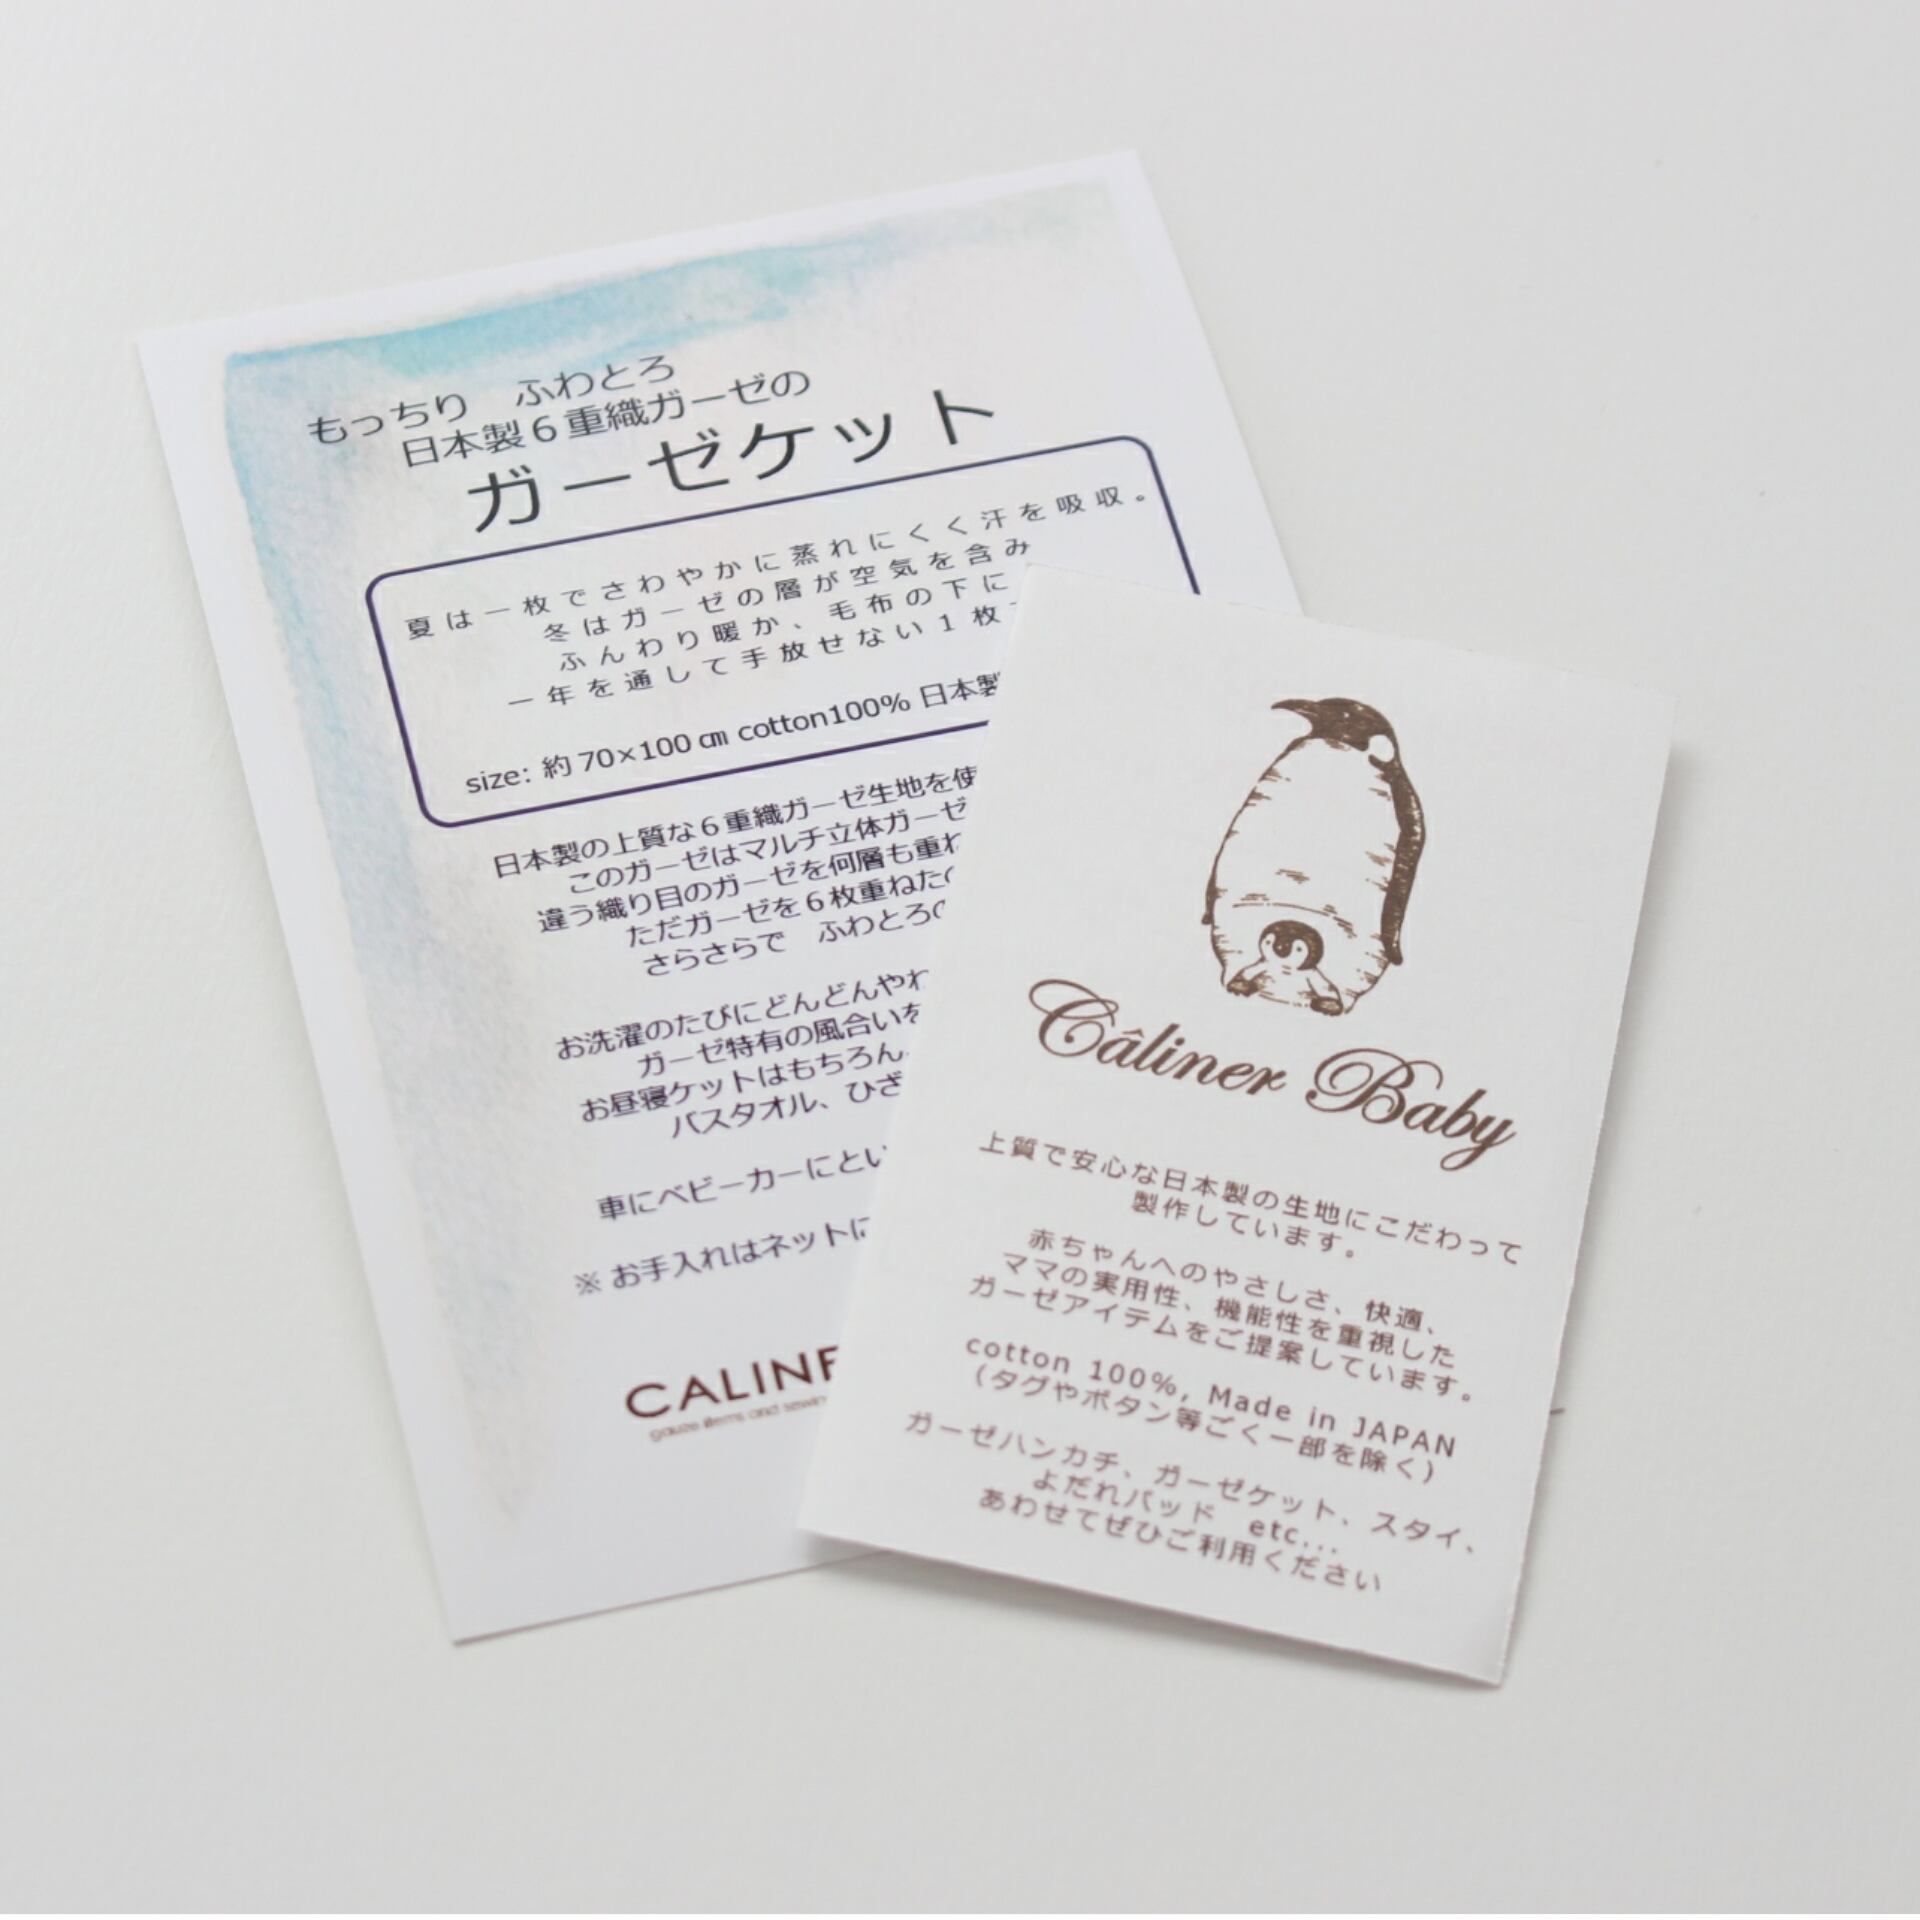 もっちり　ふわとろ
日本製６重織ガーゼの
ガーゼケット
夏は一枚でさわやかに蒸れにくく汗を吸収。
冬はガーゼの層が空気を含み
ふんわり暖か、毛布の下に
一年を通して手放せない１枚
size: 約70×100㎝ cotton100% 日本製
日本製の上質な６重織ガーゼ生地を使
このガーゼはマルチ立体ガーゼ
違う織り目のガーゼを何層も重ね
ただガーゼを６枚重ねた
さらさらで　ふわとろ
お洗濯のたびにどんどんやわ
ガーゼ特有の風合いを
お昼寝ケットはもちろん
バスタオル、ひざ
車にベビーカーにとい
※ お手入れはネットに
CALINE
gauze items and sewin
Câliner Baby
上質で安心な日本製の生地にこだわって
製作しています。
赤ちゃんへのやさしさ、快適、
ママの実用性、機能性を重視した
ガーゼアイテムをご提案しています。
cotton 100%, Made in JAPAN
（タグやボタン等ごく一部を除く）
ガーゼハンカチ、ガーゼケット、スタイ、
よだれパッド　etc...
あわせてぜひご利用ください